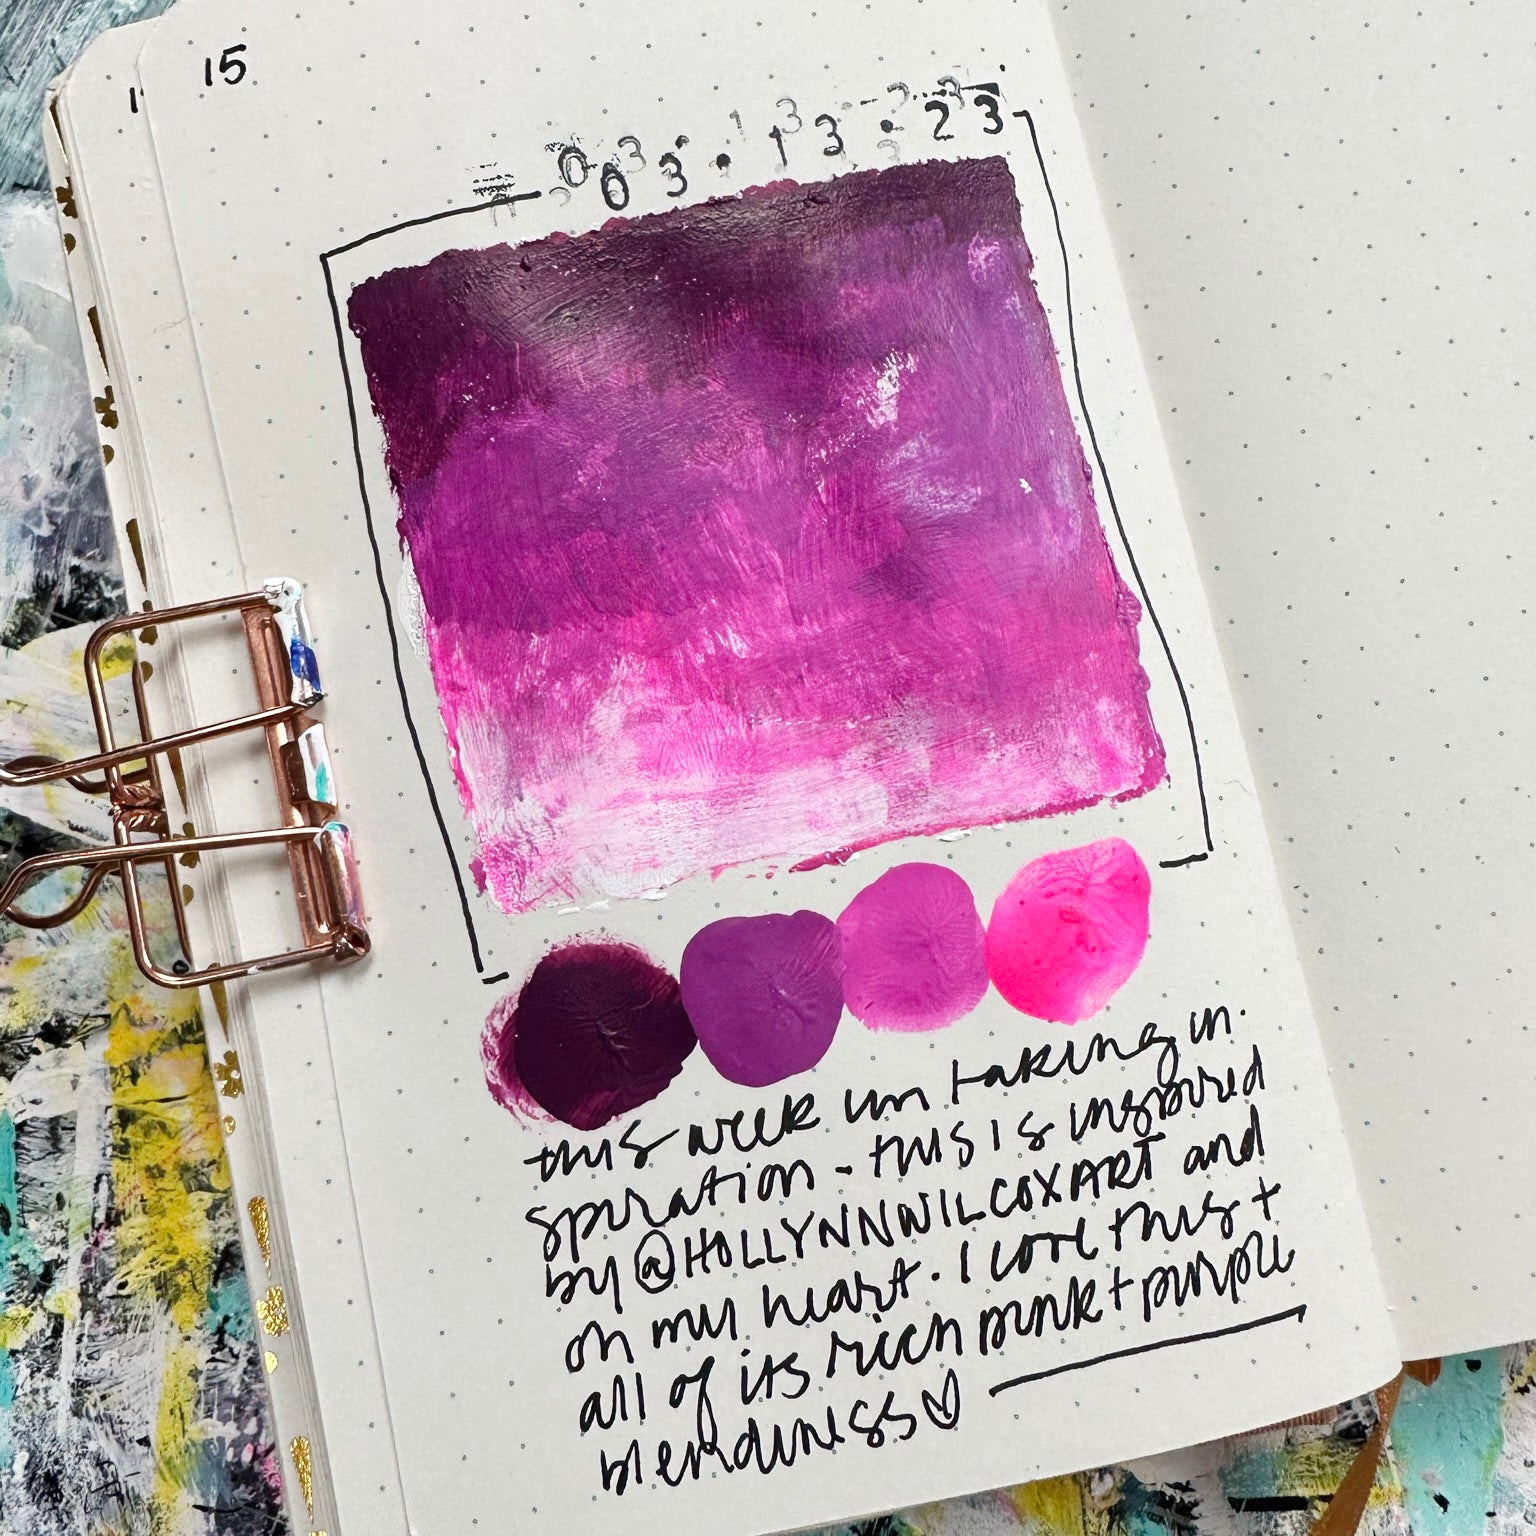 15
1
03.13.23
this week im taking in.
spiration - this is inspired
by @HOLLYNNWILCOXART and
oh my heart. I love this +
all of its rich pink + purple
blendiness